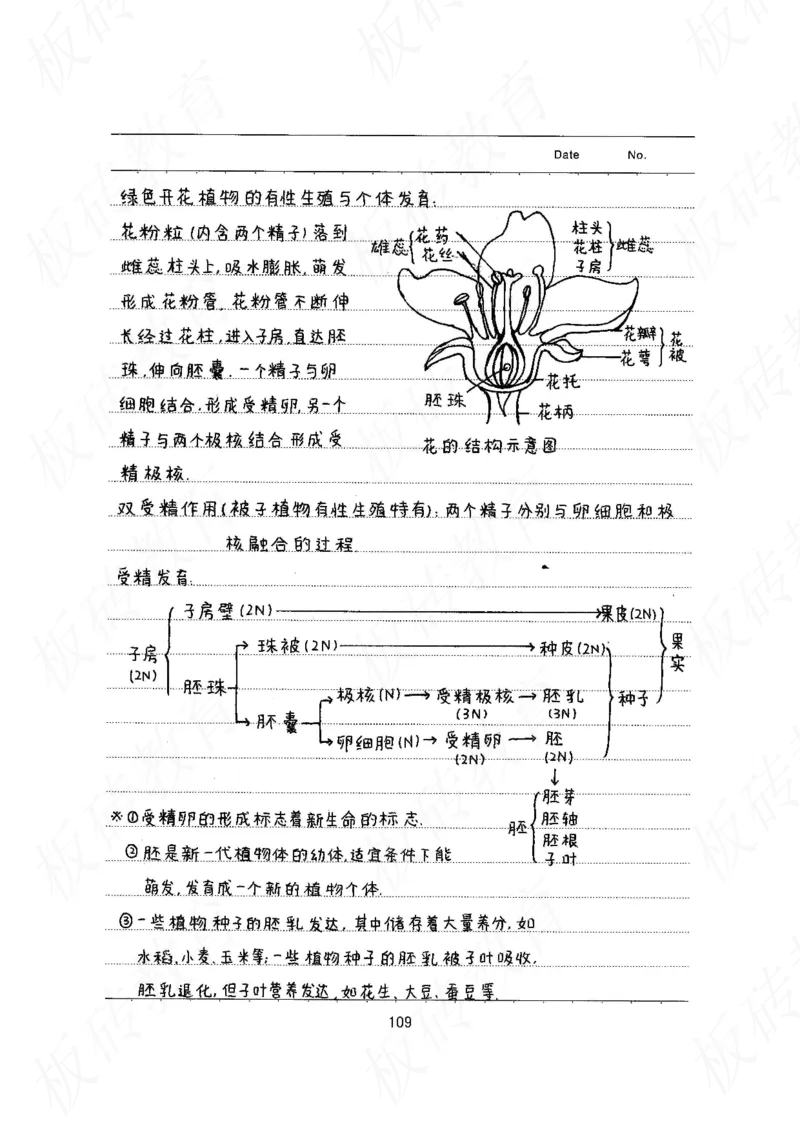 Date No.
绿色开花植物的有性生殖与个体发育:
花粉粒(内含两个精子)落到
雌蕊柱头上,吸水膨胀,萌发
形成花粉管.花粉管不断伸
长经过花柱,进入子房,直达胚
珠,伸向胚囊.一个精子与卵
细胞结合.形成受精卵,另一个
精子与两个极核结合形成受
精极核.
雄蕊{花药
花丝
柱头
花柱
子房}雌蕊
花瓣
花萼}花被
花托
胚珠
花柄
花的结构示意图
双受精作用(被子植物有性生殖特有):两个精子分别与卵细胞和极
核融合的过程.
受精发育:
子房壁(2N)→果皮(2N)
子房
(2N)
珠被(2N)→种皮(2N)
果实
胚珠
极核(N)→受精极核→胚乳
(3N) (3N)
种子
胚囊
卵细胞(N)→受精卵→胚
(2N) (2N)
↓
胚{胚芽
胚轴
胚根
子叶
※①受精卵的形成标志着新生命的标志.
②胚是新一代植物体的幼体,适宜条件下能
萌发,发育成一个新的植物个体.
③一些植物种子的胚乳发达,其中储存着大量养分,如
水稻、小麦、玉米等;一些植物种子的胚乳被子叶吸收,
胚乳退化,但子叶营养发达,如花生、大豆、蚕豆等.
109
板砖教育